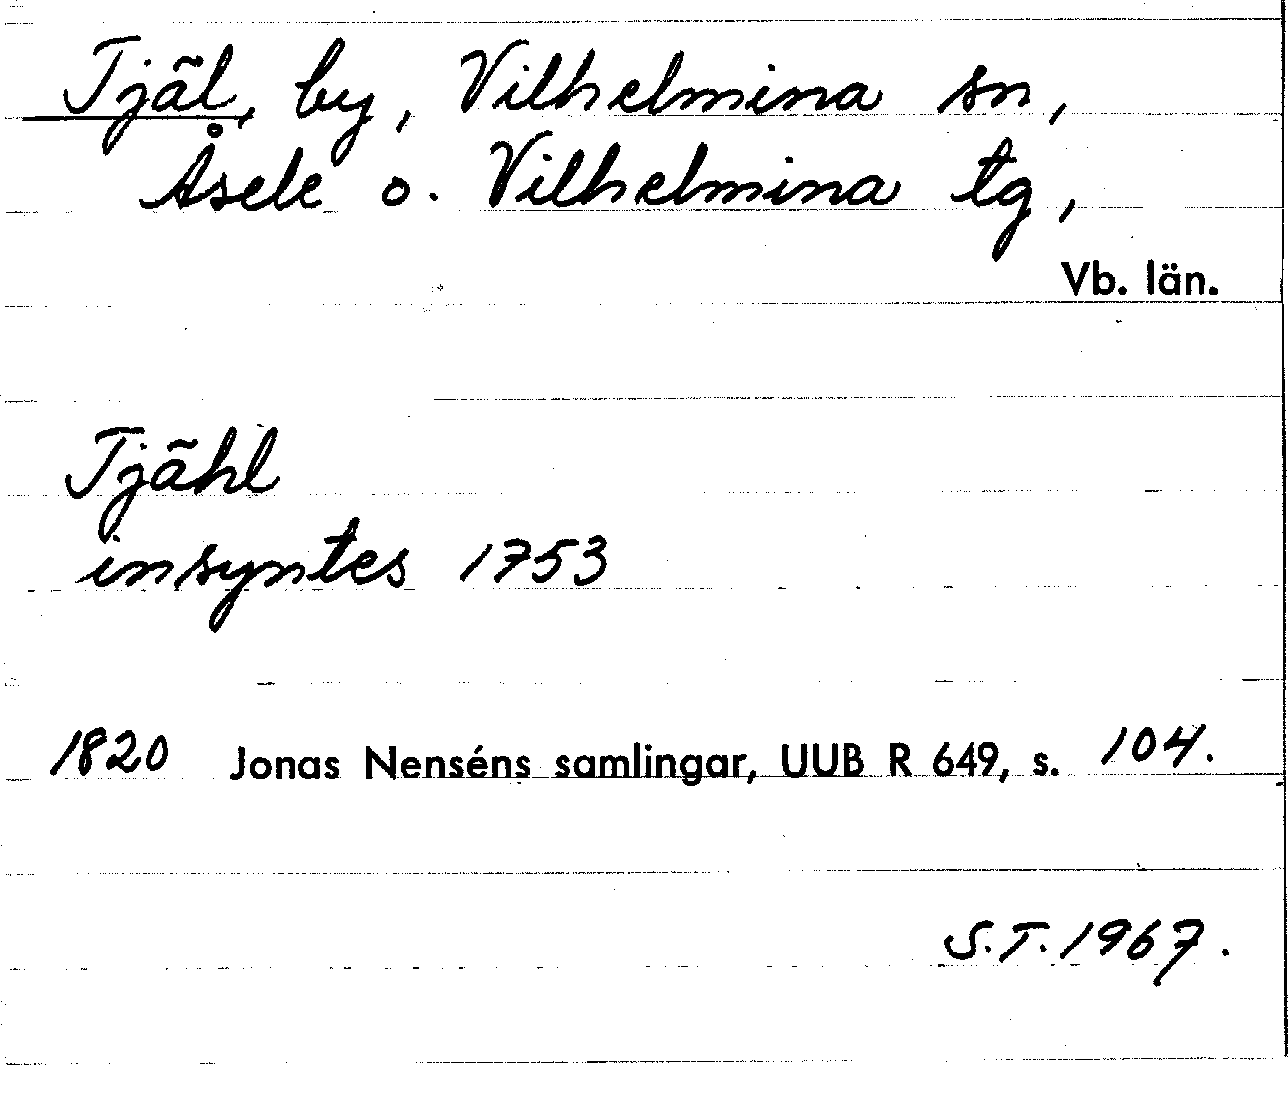 Tjäl, by, Vilhelmina sn,
Åsele o. Vilhelmina tg,
Vb. län.
Tjähl
insyntes 1753
1820 Jonas Nenséns samlingar, UUB R 649, s. 104.
S.T. 1967.